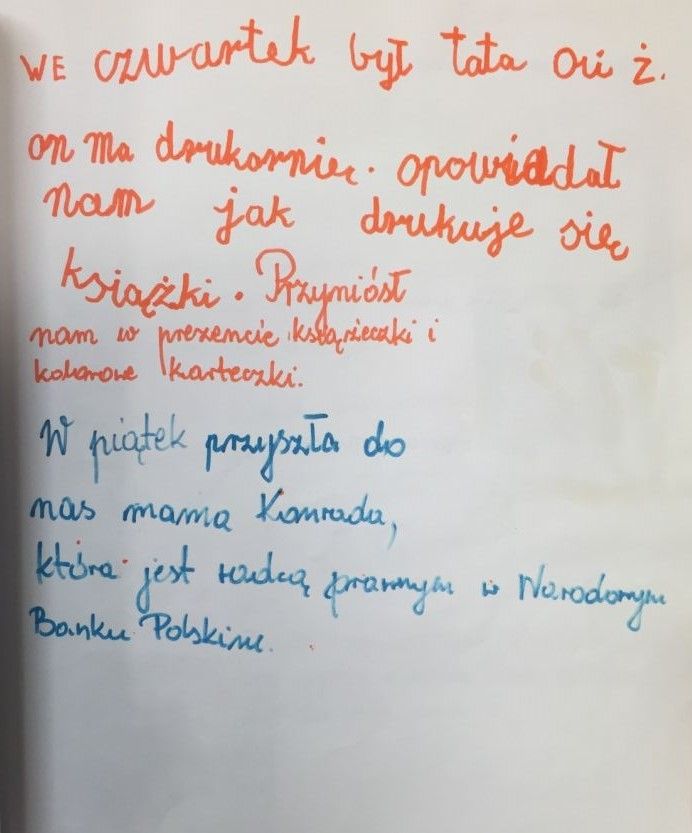 WE czwartek był tata Oli ż.
on ma drukarnię. opowiadał
nam jak drukuje się
książki. Przyniósł
nam w prezencie książeczki i
kolorowe karteczki.
W piątek przyszła do
nas mama Konrada,
która jest radcą prawnym w Narodowym
Banku Polskim.